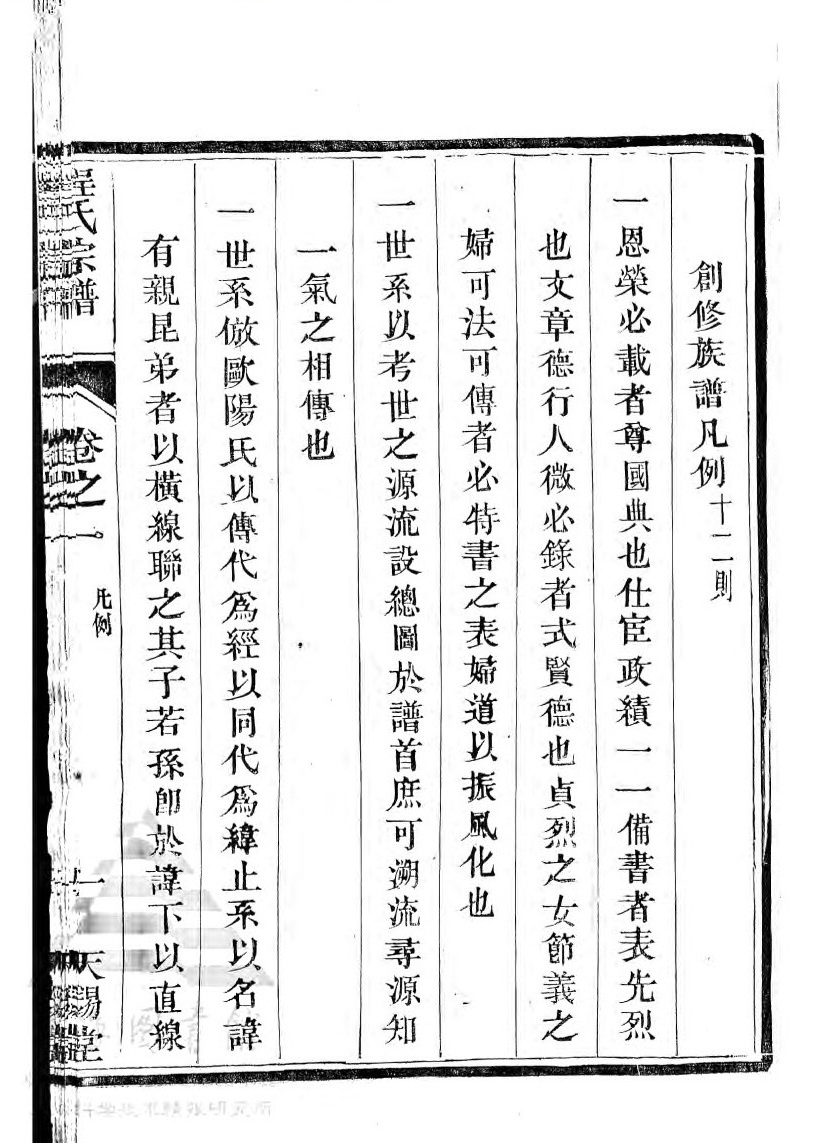 創修族譜凡例十二則
一恩榮必載者尊國典也仕宦政績一一備書者表先烈
也文章德行人微必錄者式賢德也貞烈之女節義之
婦可法可傳者必特書之表婦道以振風化也
一世系以考世之源流設總圖於譜首庶可遡流尋源知
一氣之相傳也
一世系倣歐陽氏以傳代爲經以同代爲緯止系以名諱
有親昆弟者以橫線聯之其子若孫卽於諱下以直線
程氏宗譜
卷之一
凡例
一
天錫堂